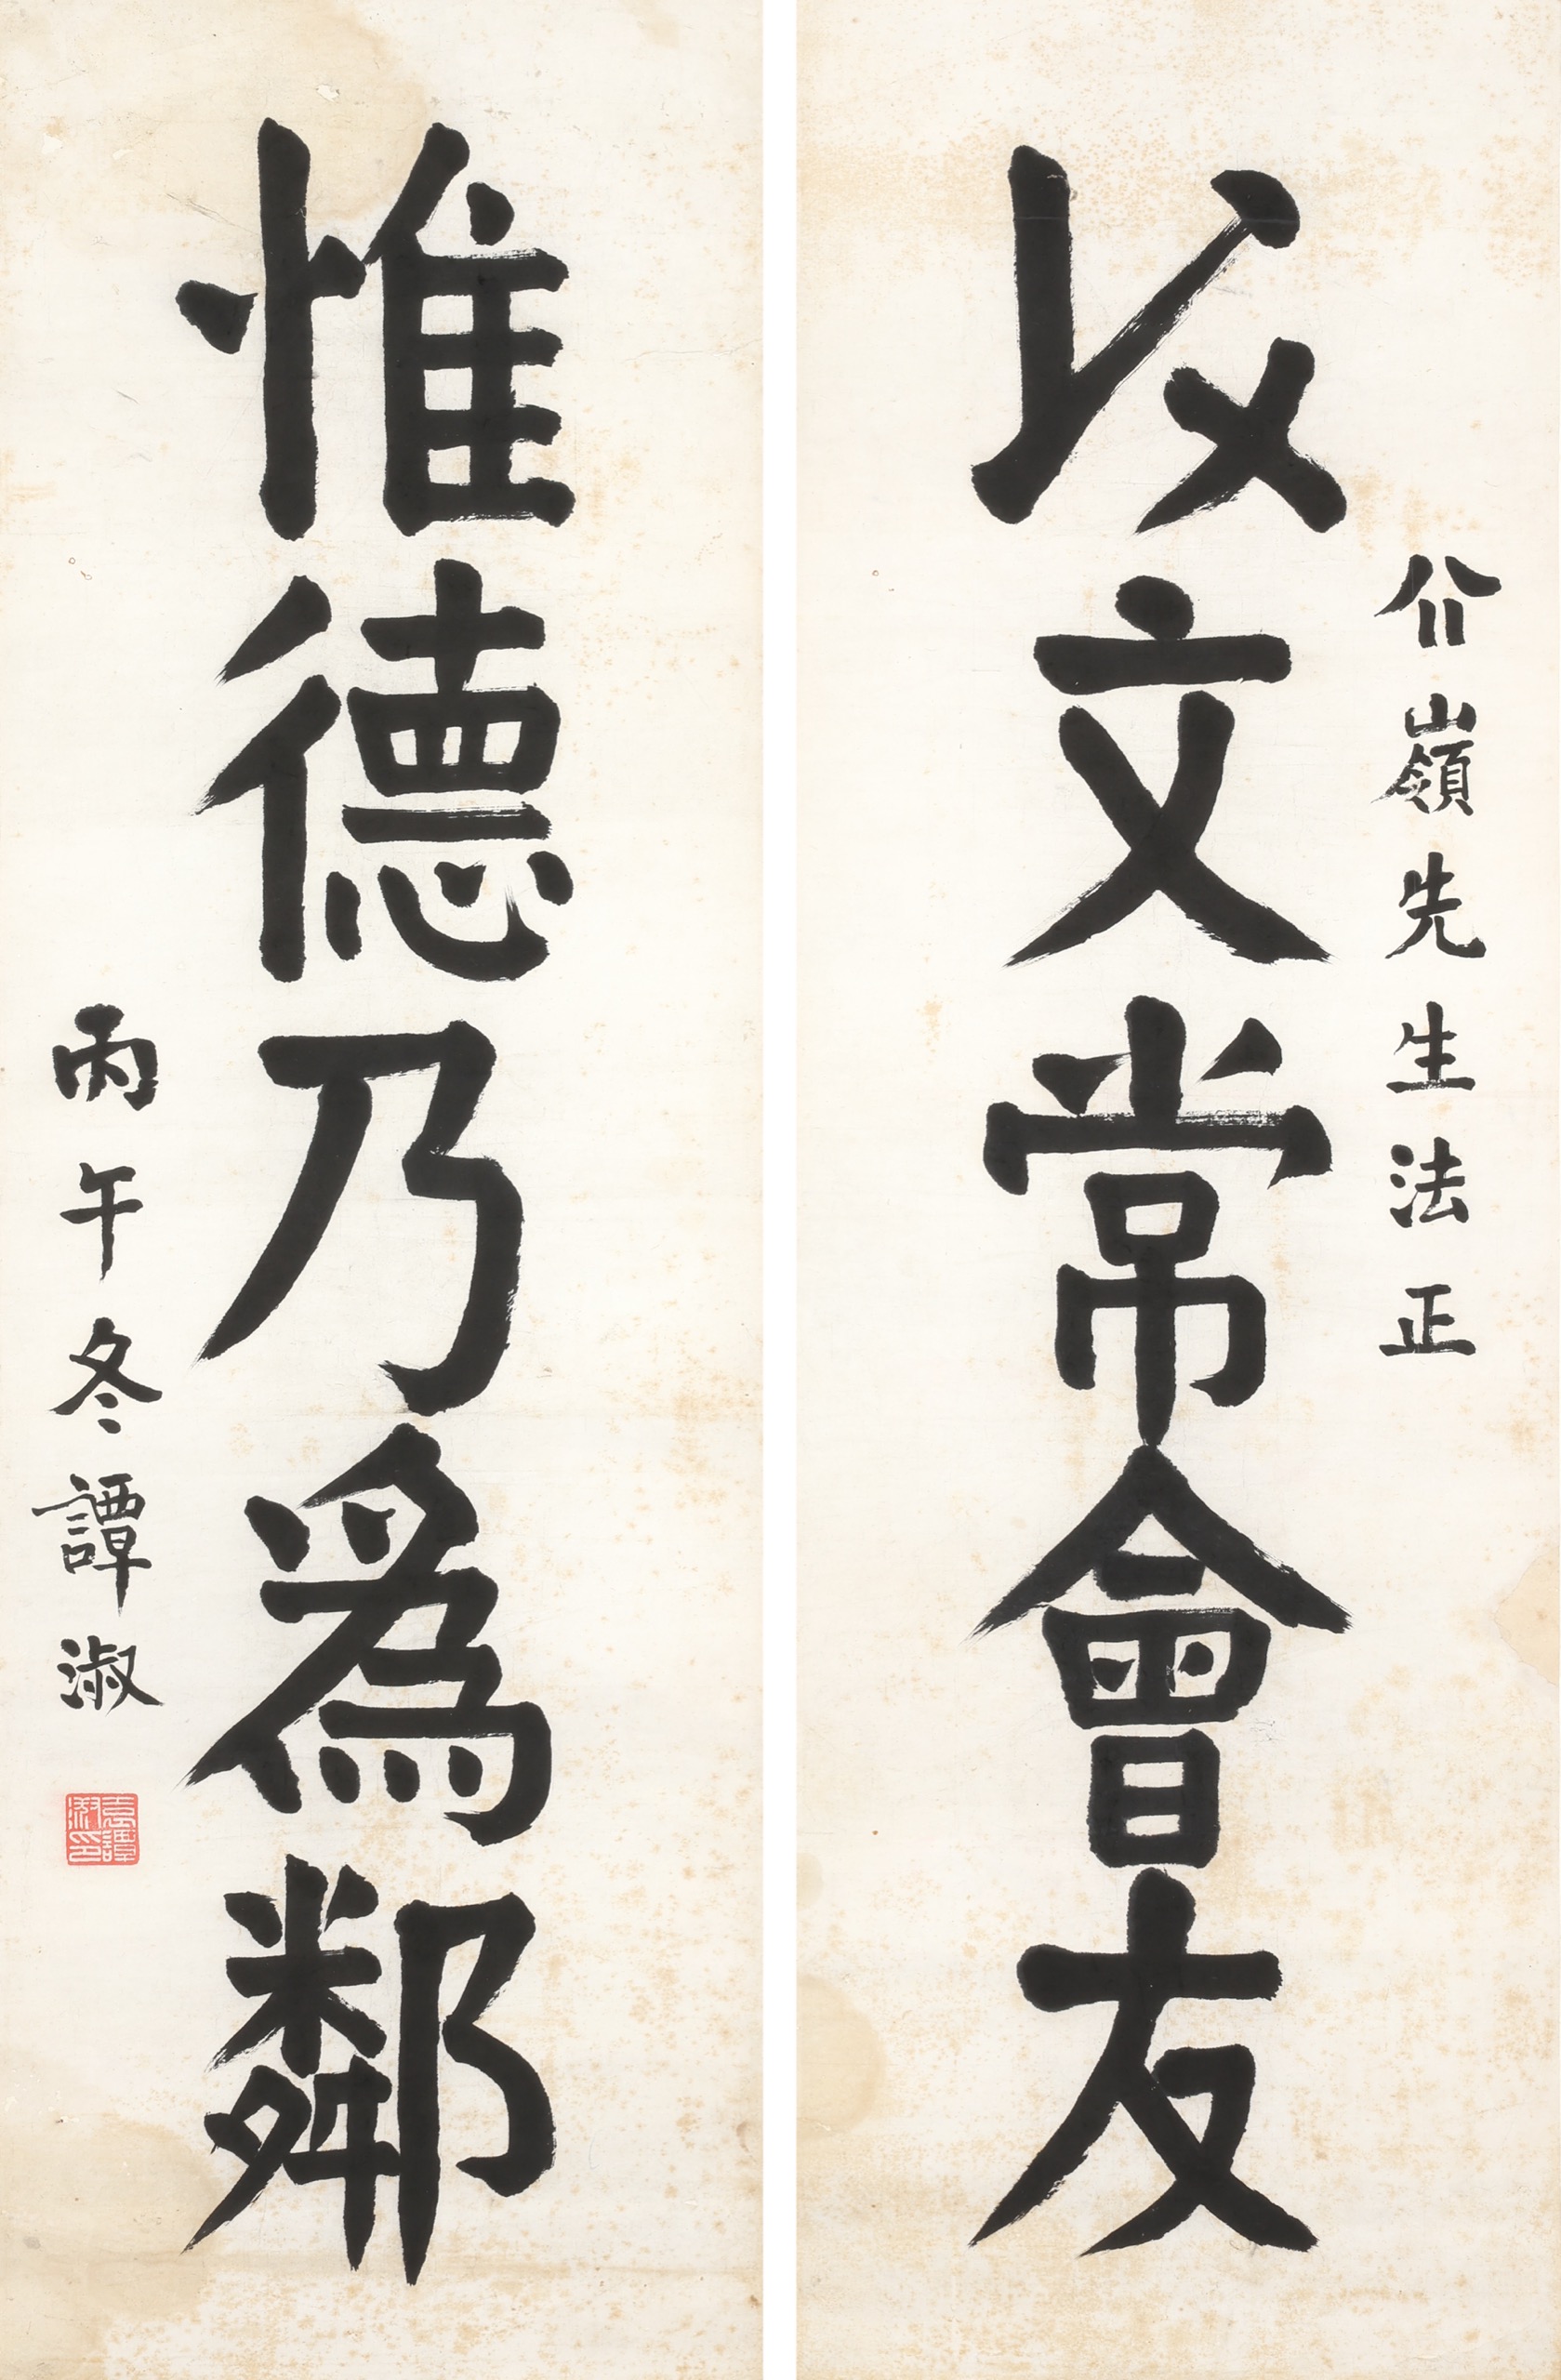 介嶺先生法正
以文常會友
惟德乃爲鄰
丙午冬譚淑
袁譚淑印